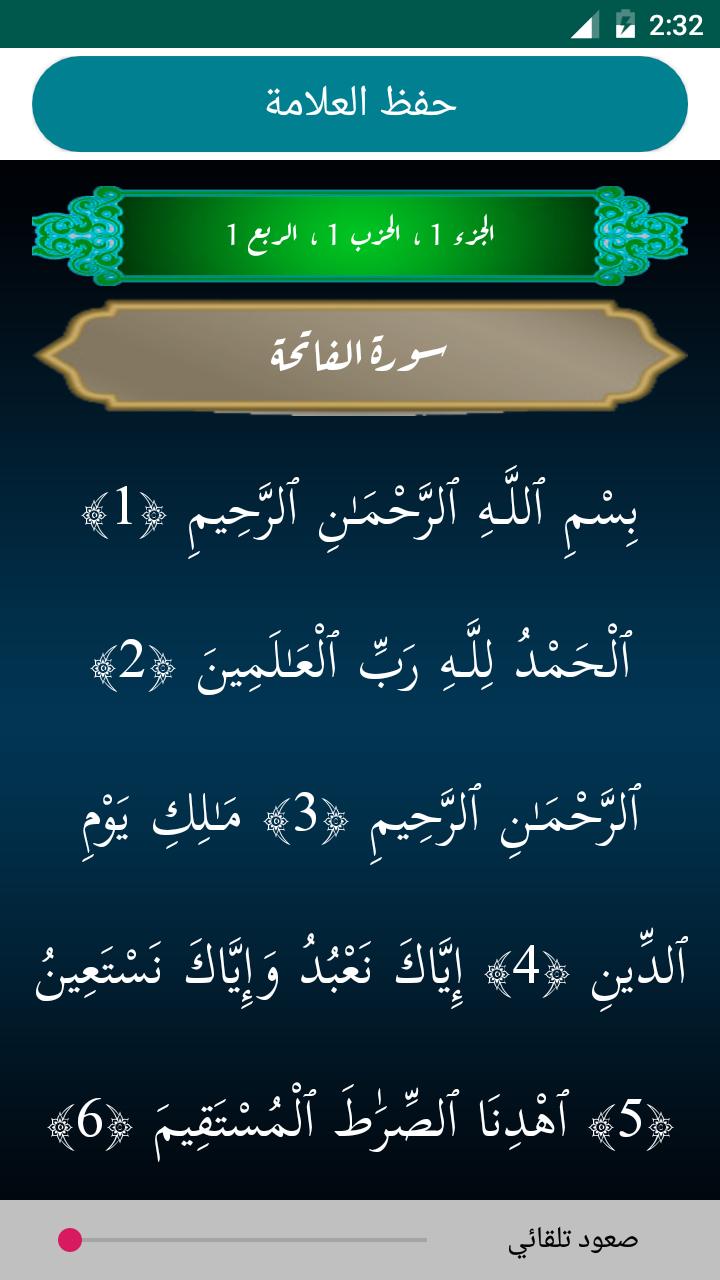 2:32
حفظ العلامة
الجزء 1 ، الحزب 1 ، الربع 1
سورة الفاتحة
بِسْمِ ٱللَّـهِ ٱلرَّحْمَـٰنِ ٱلرَّحِيمِ ﴿1﴾
ٱلْحَمْدُ لِلَّـهِ رَبِّ ٱلْعَـٰلَمِينَ ﴿2﴾
ٱلرَّحْمَـٰنِ ٱلرَّحِيمِ ﴿3﴾ مَـٰلِكِ يَوْمِ
ٱلدِّينِ ﴿4﴾ إِيَّاكَ نَعْبُدُ وَإِيَّاكَ نَسْتَعِينُ
﴿5﴾ ٱهْدِنَا ٱلصِّرَٰطَ ٱلْمُسْتَقِيمَ ﴿6﴾
صعود تلقائي